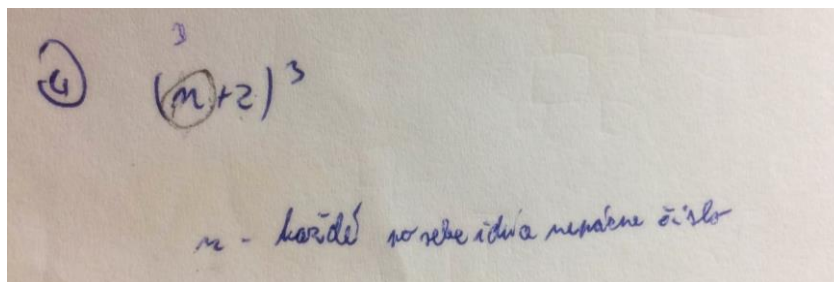 3
④ (n+2)³
n - každé po sebe idúce nepárne číslo